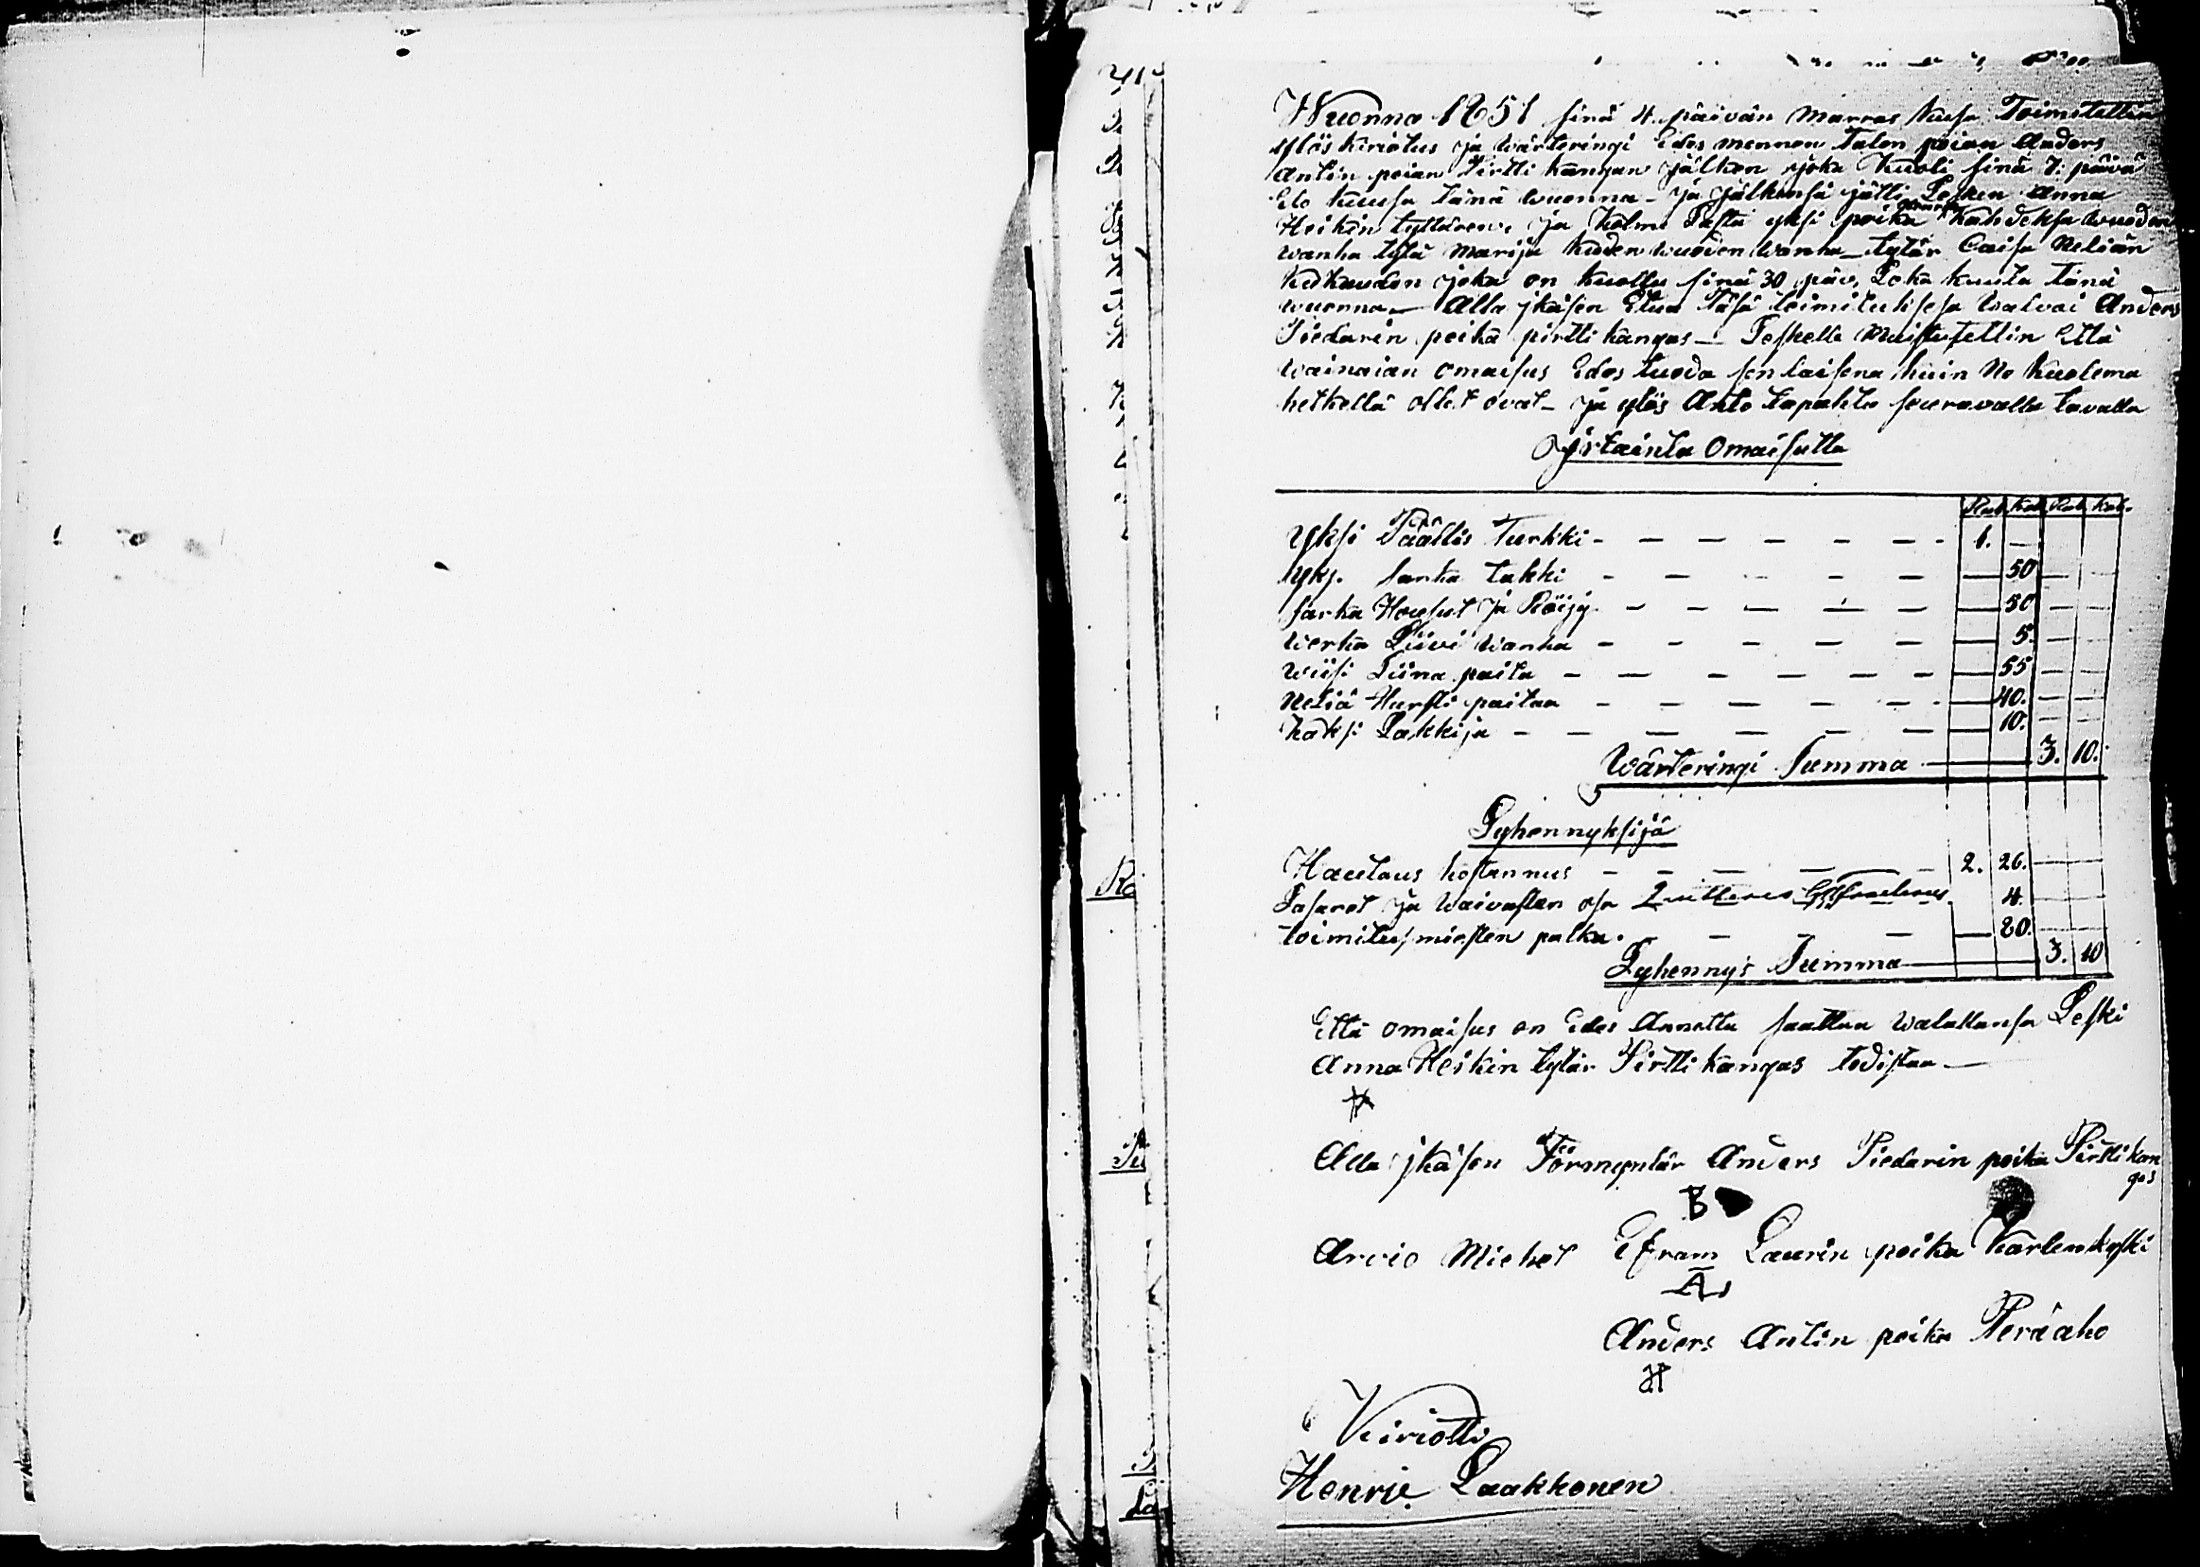 Wuonna 1851 sinä 4. päivän Marras kusa Toimitettin
ylös kirioitus ja wärteringi Edes mennen Talon poian Anders
Antin poian Pirtti kangan jälken joka kuoli sinä 7. päivä
Elo kuusa tänä wuonna – ja jälkensä jätti Lesken Anna
Heikin tyttären, ja kolme Lasta yksi poika kahdeksa wuoden
wanha tytä Marija kuden wuoden wanha – tytär Caisa Neliän
kukauden joka on kuollu sinä 30 päv. Loka kuuta tänä
wuonna – Alla jkäsen Etua Täsä toimituksesa walvoi Anders
Piedarin poika pirtti kangas – Leskelle Muistutettin Että
wainaian omaisus Edes tuoda sen laisena kuin Ne kuolema
hetkellä ollet ovat – ja ylös Anto tapahtu seuravalla tavalla
Jrtainta Omaisutta
Rub. Kop. Rub. Kop.
Yksi Päällis Turkki - - - 1. –
Yks. Sarka takki - - - 50
Sarka Housut ja Röijy - - - 50
Werka Liivi Wanha - - - 5.
Wiisi Liina paita - - - 55
Neliä Hursti paitaa - - - 40.
Kaksi Lakkija - - - 10.
Wärteringi Summa 3. 10.
Lyhennyksijä
Hautaus kostannus - - - 2. 26.
Waivasten osa 4.
toimitus miesten palka. - - - 80.
Lyhennys Summa 3. 10
Että omaisus on Edes Annettu saattaa walallansa Leski
Anna Heikin tytär Pirtti kangas todistaa –
Alla jkäsen Förmyntär Anders Piedarin poika Pirtti kan
gas
B
Arvio Miehet Efram Laurin poika Karlenkyski
A
Anders Antin poika Peräaho
Kiriotti
Henric Laakkonen